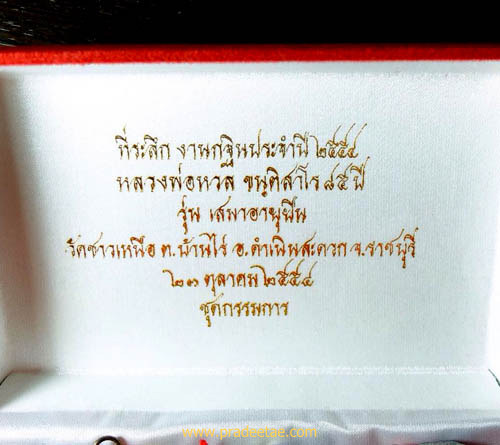 ที่ระลึก งานกฐินประจำปี ๒๕๕๔
หลวงพ่อหวล ขนฺติสาโร ๘๕ ปี
รุ่น เสมาอายุยืน
วัดชาวเหนือ ต.บ้านไร่ อ.ดำเนินสะดวก จ.ราชบุรี
๒๓ ตุลาคม ๒๕๕๔
ชุดกรรมการ
www.pradeetae.com